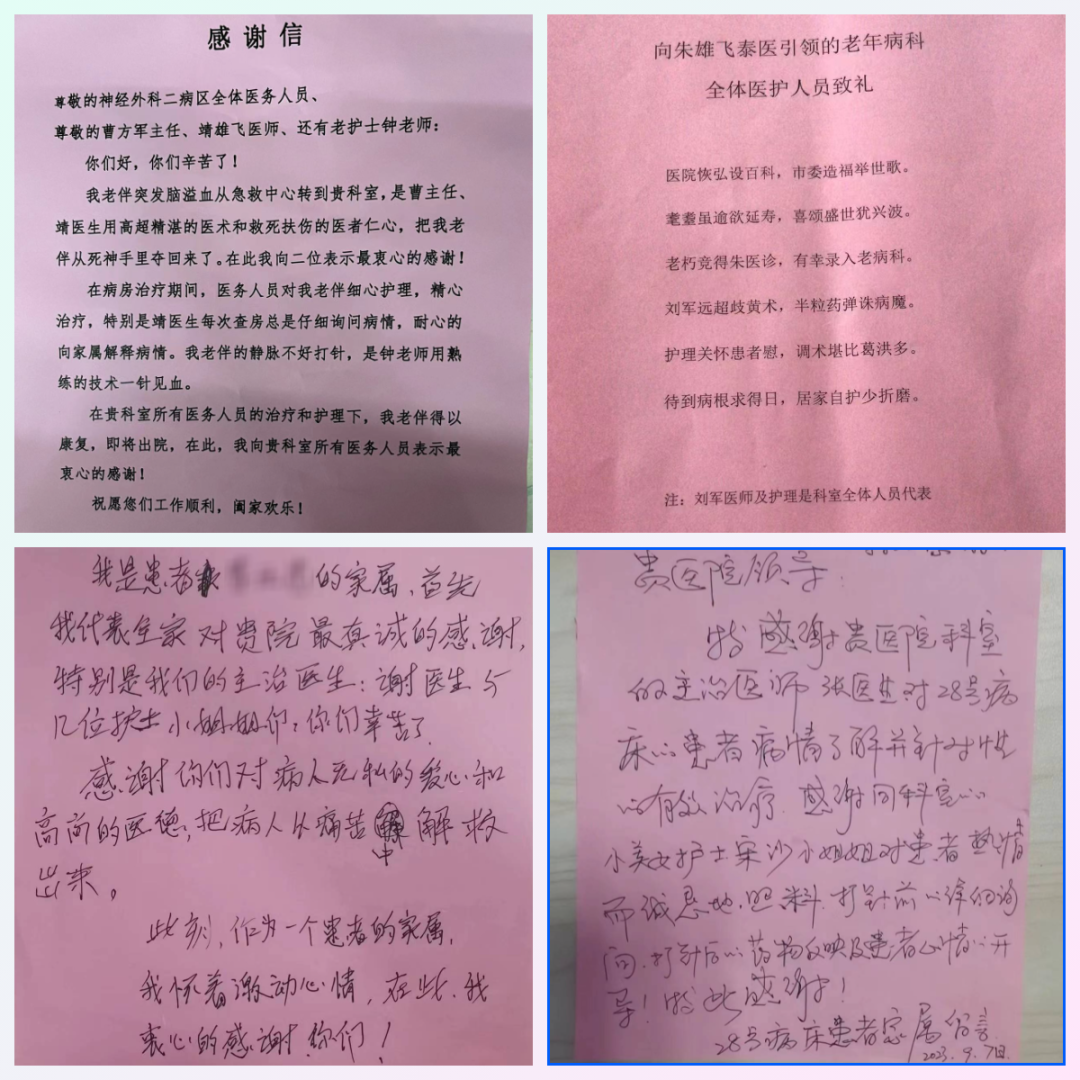 感谢信
尊敬的神经外科二病区全体医务人员、
尊敬的曹方军主任、靖雄飞医师、还有老护士钟老师：
你们好，你们辛苦了！
我老伴突发脑溢血从急救中心转到贵科室，是曹主任、
靖医生用高超精湛的医术和救死扶伤的医者仁心，把我老
伴从死神手里夺回来了。在此我向二位表示最衷心的感谢！
在病房治疗期间，医务人员对我老伴细心护理，精心
治疗，特别是靖医生每次查房总是仔细询问病情，耐心的
向家属解释病情。我老伴的静脉不好打针，是钟老师用熟
练的技术一针见血。
在贵科室所有医务人员的治疗和护理下，我老伴得以
康复，即将出院，在此，我向贵科室所有医务人员表示最
衷心的感谢！
祝愿您们工作顺利，阖家欢乐！
向朱雄飞泰医引领的老年病科
全体医护人员致礼
医院恢弘设百科，市委造福举世歌。
耄耋虽逾欲延寿，喜颂盛世犹兴波。
老朽竞得朱医诊，有幸录入老病科。
刘军远超歧黄术，半粒药弹诛病魔。
护理关怀患者慰，调术堪比葛洪多。
待到病根求得日，居家自护少折磨。
注：刘军医师及护理是科室全体人员代表
我是患者 的家属，首先
我代表全家对贵院最真诚的感谢，
特别是我们的主治医生：谢医生与
几位护士小姐姐们：你们幸苦了
感谢你们对病人无私的爱心和
高尚的医德；把病人从痛苦中解救
出来。
此刻，作为一个患者的家属，
我怀着激动心情，在此，我
衷心的感谢你们！
贵医院领导：
特感谢贵医院科室
的主治医师张医生对28号病
床的患者病情了解并针对性
的有效治疗。感谢同科室的
小美女护士宋沙小姐姐对患者热情
而诚恳地照料。打针前的详细询
问，打针后的药物反映及患者心情的开
导！特此感谢！
28号病床患者家属留言
2023.9.7日